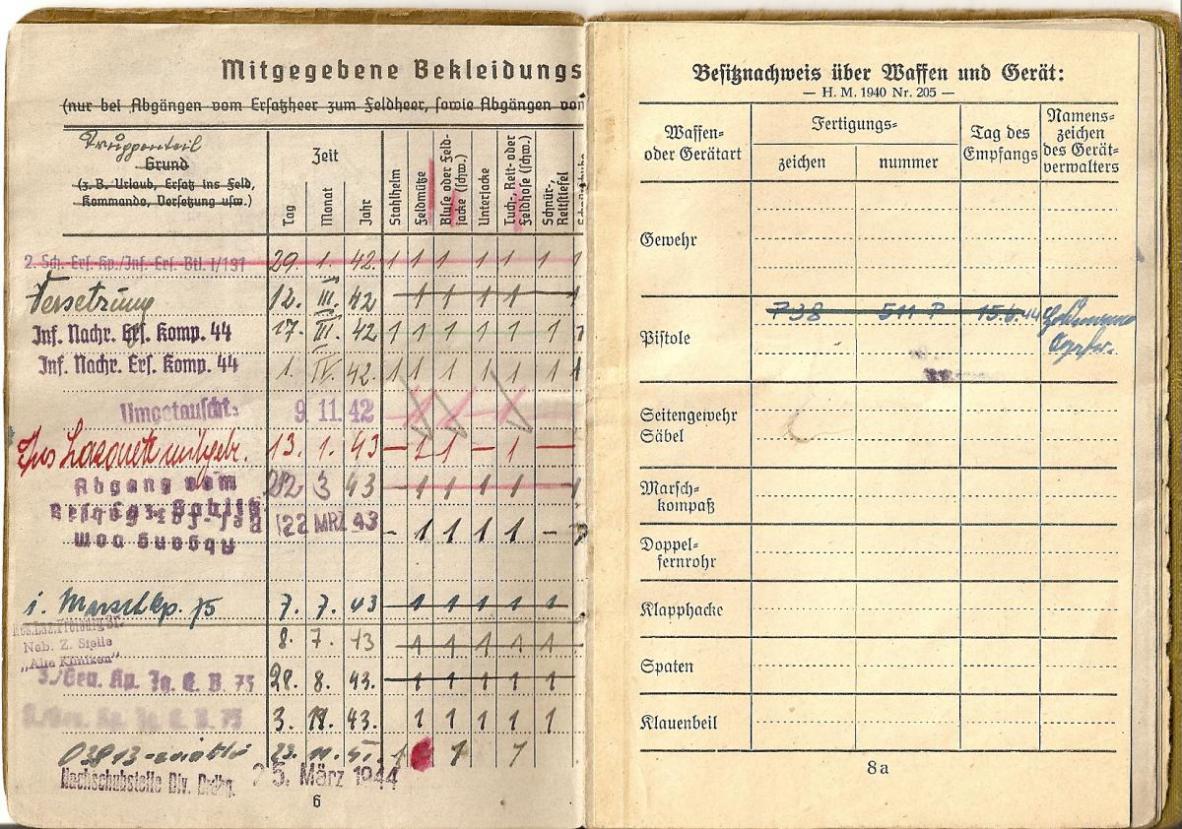 Mitgegebene Bekleidungs
(nur bei Abgängen vom Ersatzheer zum Feldheer, sowie Abgängen von
Truppenteil
Grund
(z. B. Urlaub, Ersatz ins Feld,
Kommando, Versetzung usw.)
Zeit
Tag
Monat
Jahr
Stahlhelm
Feldmütze
Bluse oder Feld-
jacke (schw.)
Unterjacke
Tuch-, Reit- oder
Feldhose (schw.)
Schnür-,
Reitstiefel
2. Sch.-Ers.-Kp./Inf.-Ers.-Btl. I/131 29. 1. 42. 1 1 1 1 1 1 1
Versetzung 12. III. 42 1 1 1 1
Inf. Nachr. Ers. Komp. 44 17. III. 42 1 1 1 1 1 1
Inf. Nachr. Ers. Komp. 44 1. IV. 42. 1 1 1 1 1 1
Umgetauscht: 9 11. 42
Aus Lazarett mitgebr. 13. 1. 43 – 1 1 – 1 –
Abgang vom 3 43 1 1 1 1
Abgang vom 22 MRZ 43 - 1 1 1 1 -
i. Marschkp. 75 7. 7. 43 1 1 1 1 1
Neb. Z. Stelle 8. 7. 43 1 1 1 1 1
"Alte Kliniken"
28. 8. 43. 1 1 1 1 1
3. 43. 1 1 1 1 1
Nachschubstelle Div. 25. März 1944
6
Besitznachweis über Waffen und Gerät:
— H. M. 1940 Nr. 205 —
Waffen-
oder Gerätart
Fertigungs-
zeichen
nummer
Tag des
Empfangs
Namens-
zeichen
des Gerät-
verwalters
Gewehr
Pistole P38 511 P 15.6.44
Seitengewehr
Säbel
Marsch-
kompaß
Doppel-
fernrohr
Klapphacke
Spaten
Klauenbeil
8a